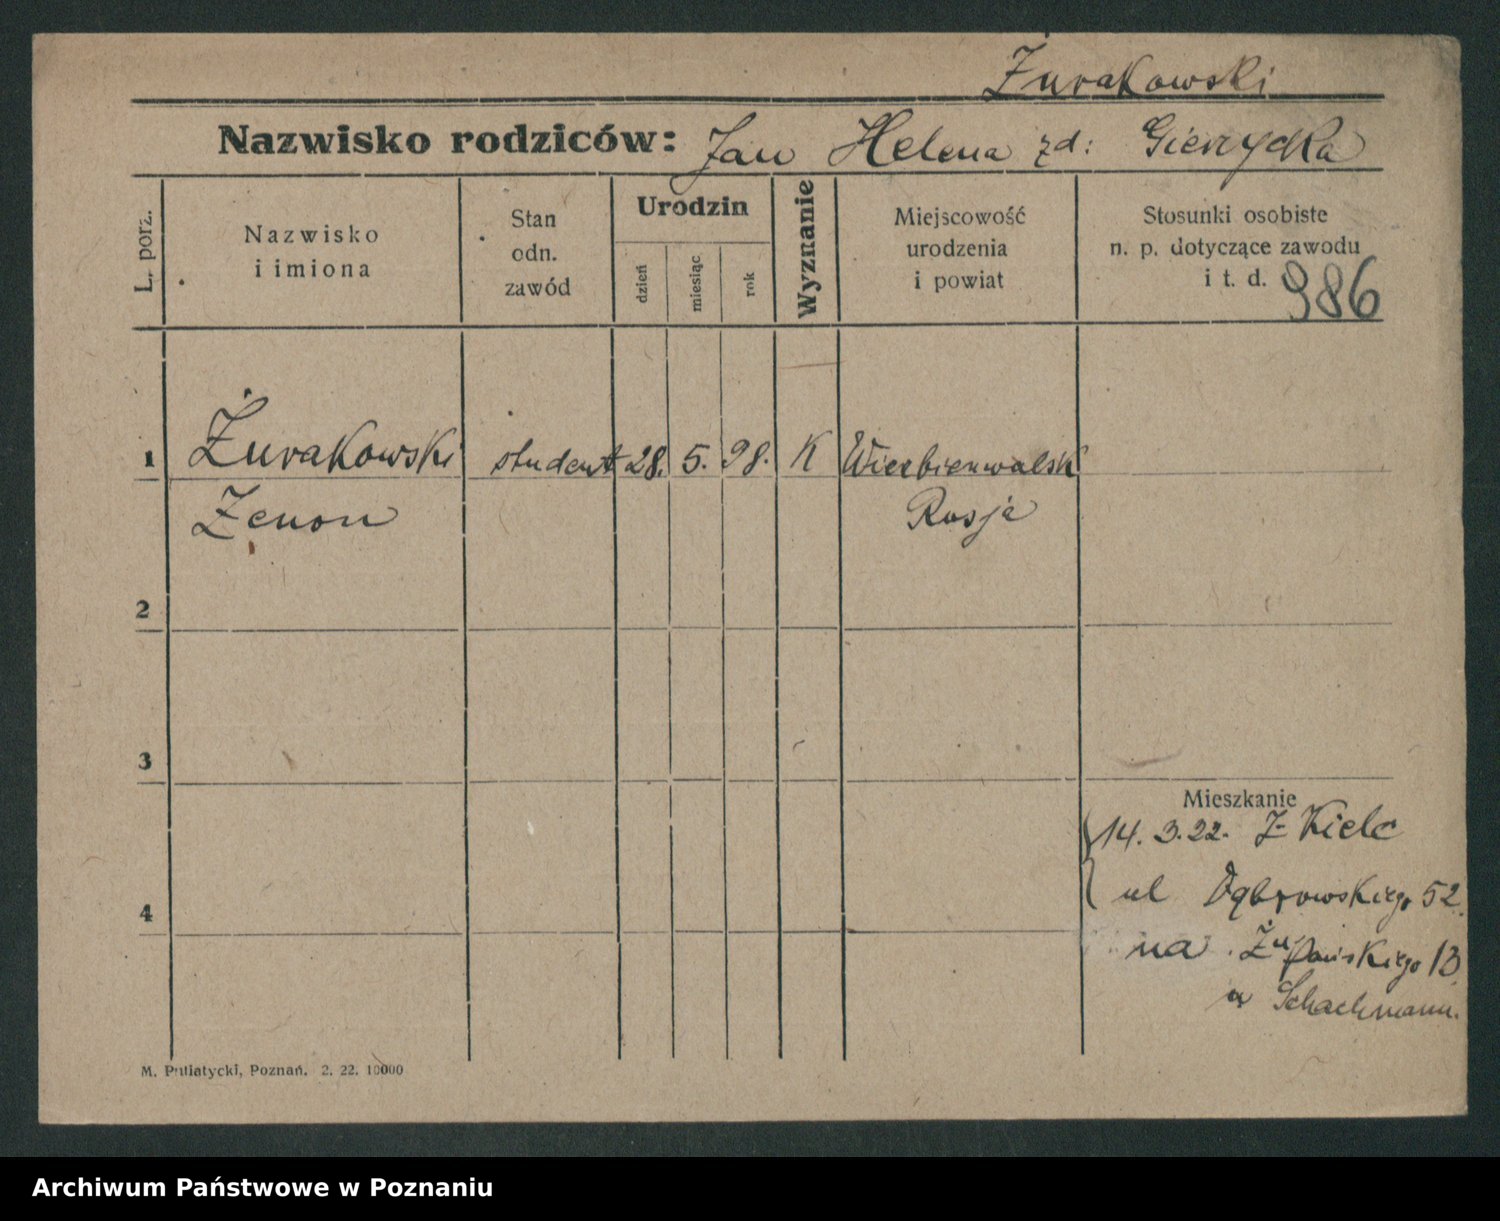 Żurakowski
Nazwisko rodziców: Jan Helena zd: Gierzycka
L. porz.
Nazwisko
i imiona
Stan
odn.
zawód
Urodzin
dzień
miesiąc
rok
Wyznanie
Miejscowość
urodzenia
i powiat
Stosunki osobiste
n. p. dotyczące zawodu
i t. d. 986
1 Żurakowski student 28. 5. 98. K Wierbienwalsk
Zenon Rosja
2
3
Mieszkanie
14. 3. 22. Z Kielc
4 ul Dąbrowskiego 52.
na Żupańskiego 13
u Schachmann.
M. Putiatycki, Poznań. 2. 22. 10000
Archiwum Państwowe w Poznaniu